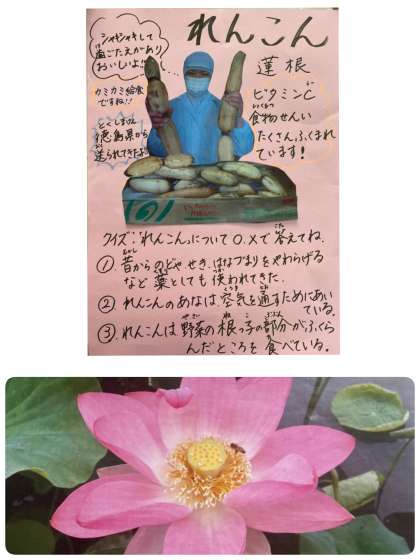 れんこん
蓮根
シャキシャキして
歯ごたえがあり
おいしいよ
カミカミ給食
ですね!!
徳島県から
送られてきたよ
ビタミンC
食物せんい
たくさんふくまれ
ています!
クイズ:「れんこん」について○.×で答えてね.
① 昔からのどや、せき、はなづまりをやわらげる
など薬としても使われてきた.
② れんこんのあなは、空気を通すためにあい
ている.
③ れんこんは野菜の根っ子の部分がふくら
んだところを食べている。